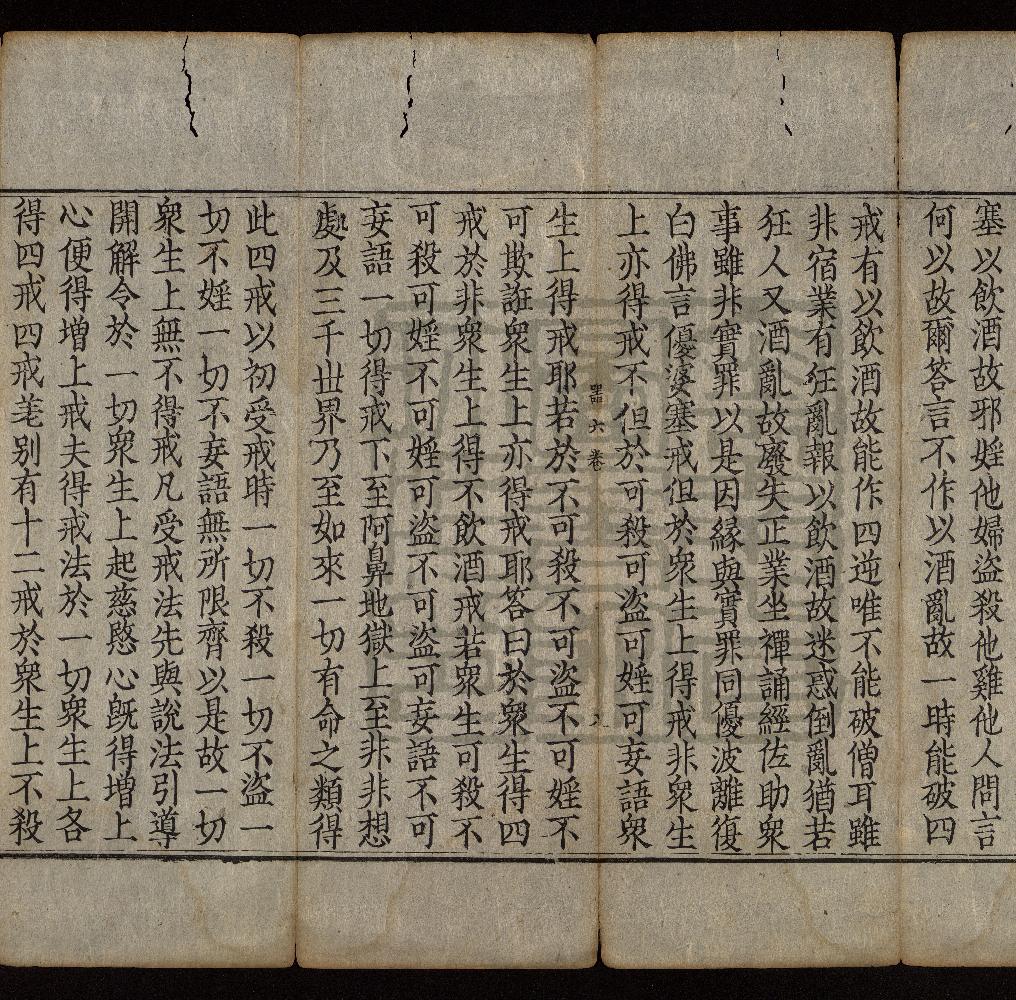 塞以飲酒故邪婬他婦盜殺他雞他人問言
何以故爾答言不作以酒亂故一時能破四
戒有以飲酒故能作四逆唯不能破僧耳雖
非宿業有狂亂報以飲酒故迷惑倒亂猶若
狂人又酒亂故廢失正業坐禪誦經佐助衆
事雖非實罪以是因緣與實罪同優波離復
白佛言優婆塞戒但於衆生上得戒非衆生
上亦得戒不但於可殺可盜可婬可妄語衆
六卷
生上得戒耶若於不可殺不可盜不可婬不
可欺誑衆生上亦得戒耶答曰於衆生得四
戒於非衆生上得不飲酒戒若衆生可殺不
可殺可婬不可婬可盜不可盜可妄語不可
妄語一切得戒下至阿鼻地獄上至非非想
處及三千世界乃至如來一切有命之類得
此四戒以初受戒時一切不殺一切不盜一
切不婬一切不妄語無所限齊以是故一切
衆生上無不得戒凡受戒法先與說法引導
開解令於一切衆生上起慈愍心旣得增上
心便得增上戒夫得戒法於一切衆生上各
得四戒四戒差别有十二戒於衆生上不殺